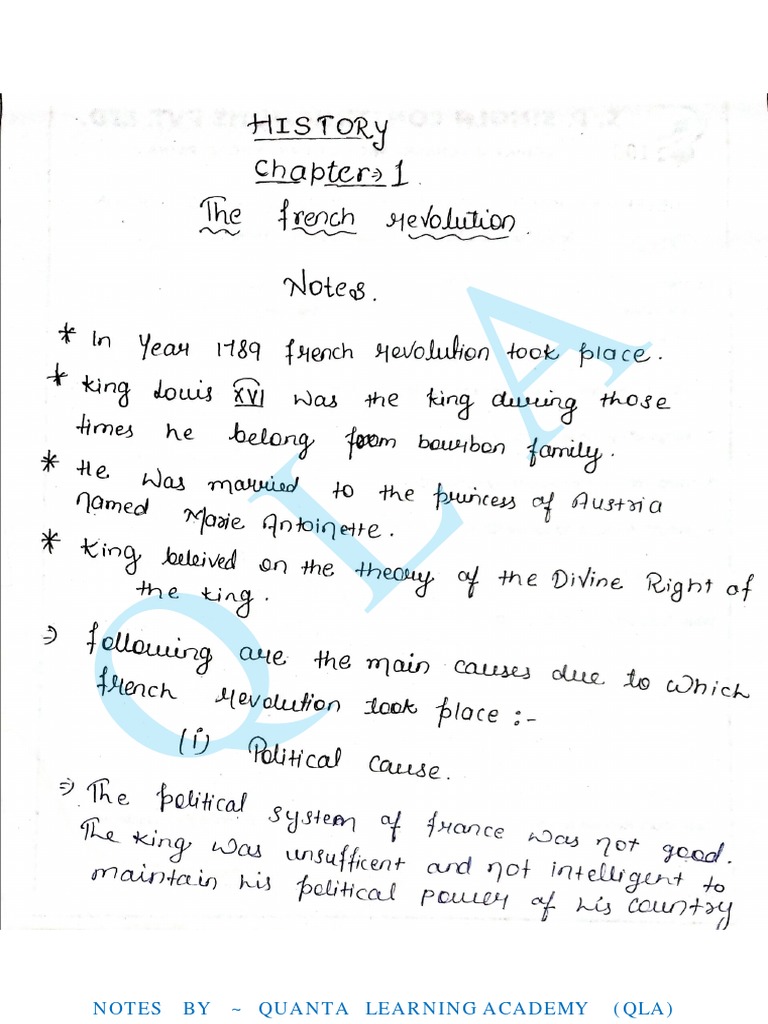 HISTORY
Chapter⇒1.
The french revolution.
Notes.
* In Year 1789 french revolution took place.
* King Louis XVI was the king during those
times he belong from bourbon family.
* He was married to the princess of Austria
named Marie Antoinette.
* King beleived on the theory of the Divine Right of
the king.
⇒ following are the main causes due to which
french revolution took place :-
(i) Political cause.
⇒ The political system of france was not good.
The king was unsufficent and not intelligent to
maintain his political power of his country
QLA
NOTES BY ~ QUANTA LEARNING ACADEMY (QLA)